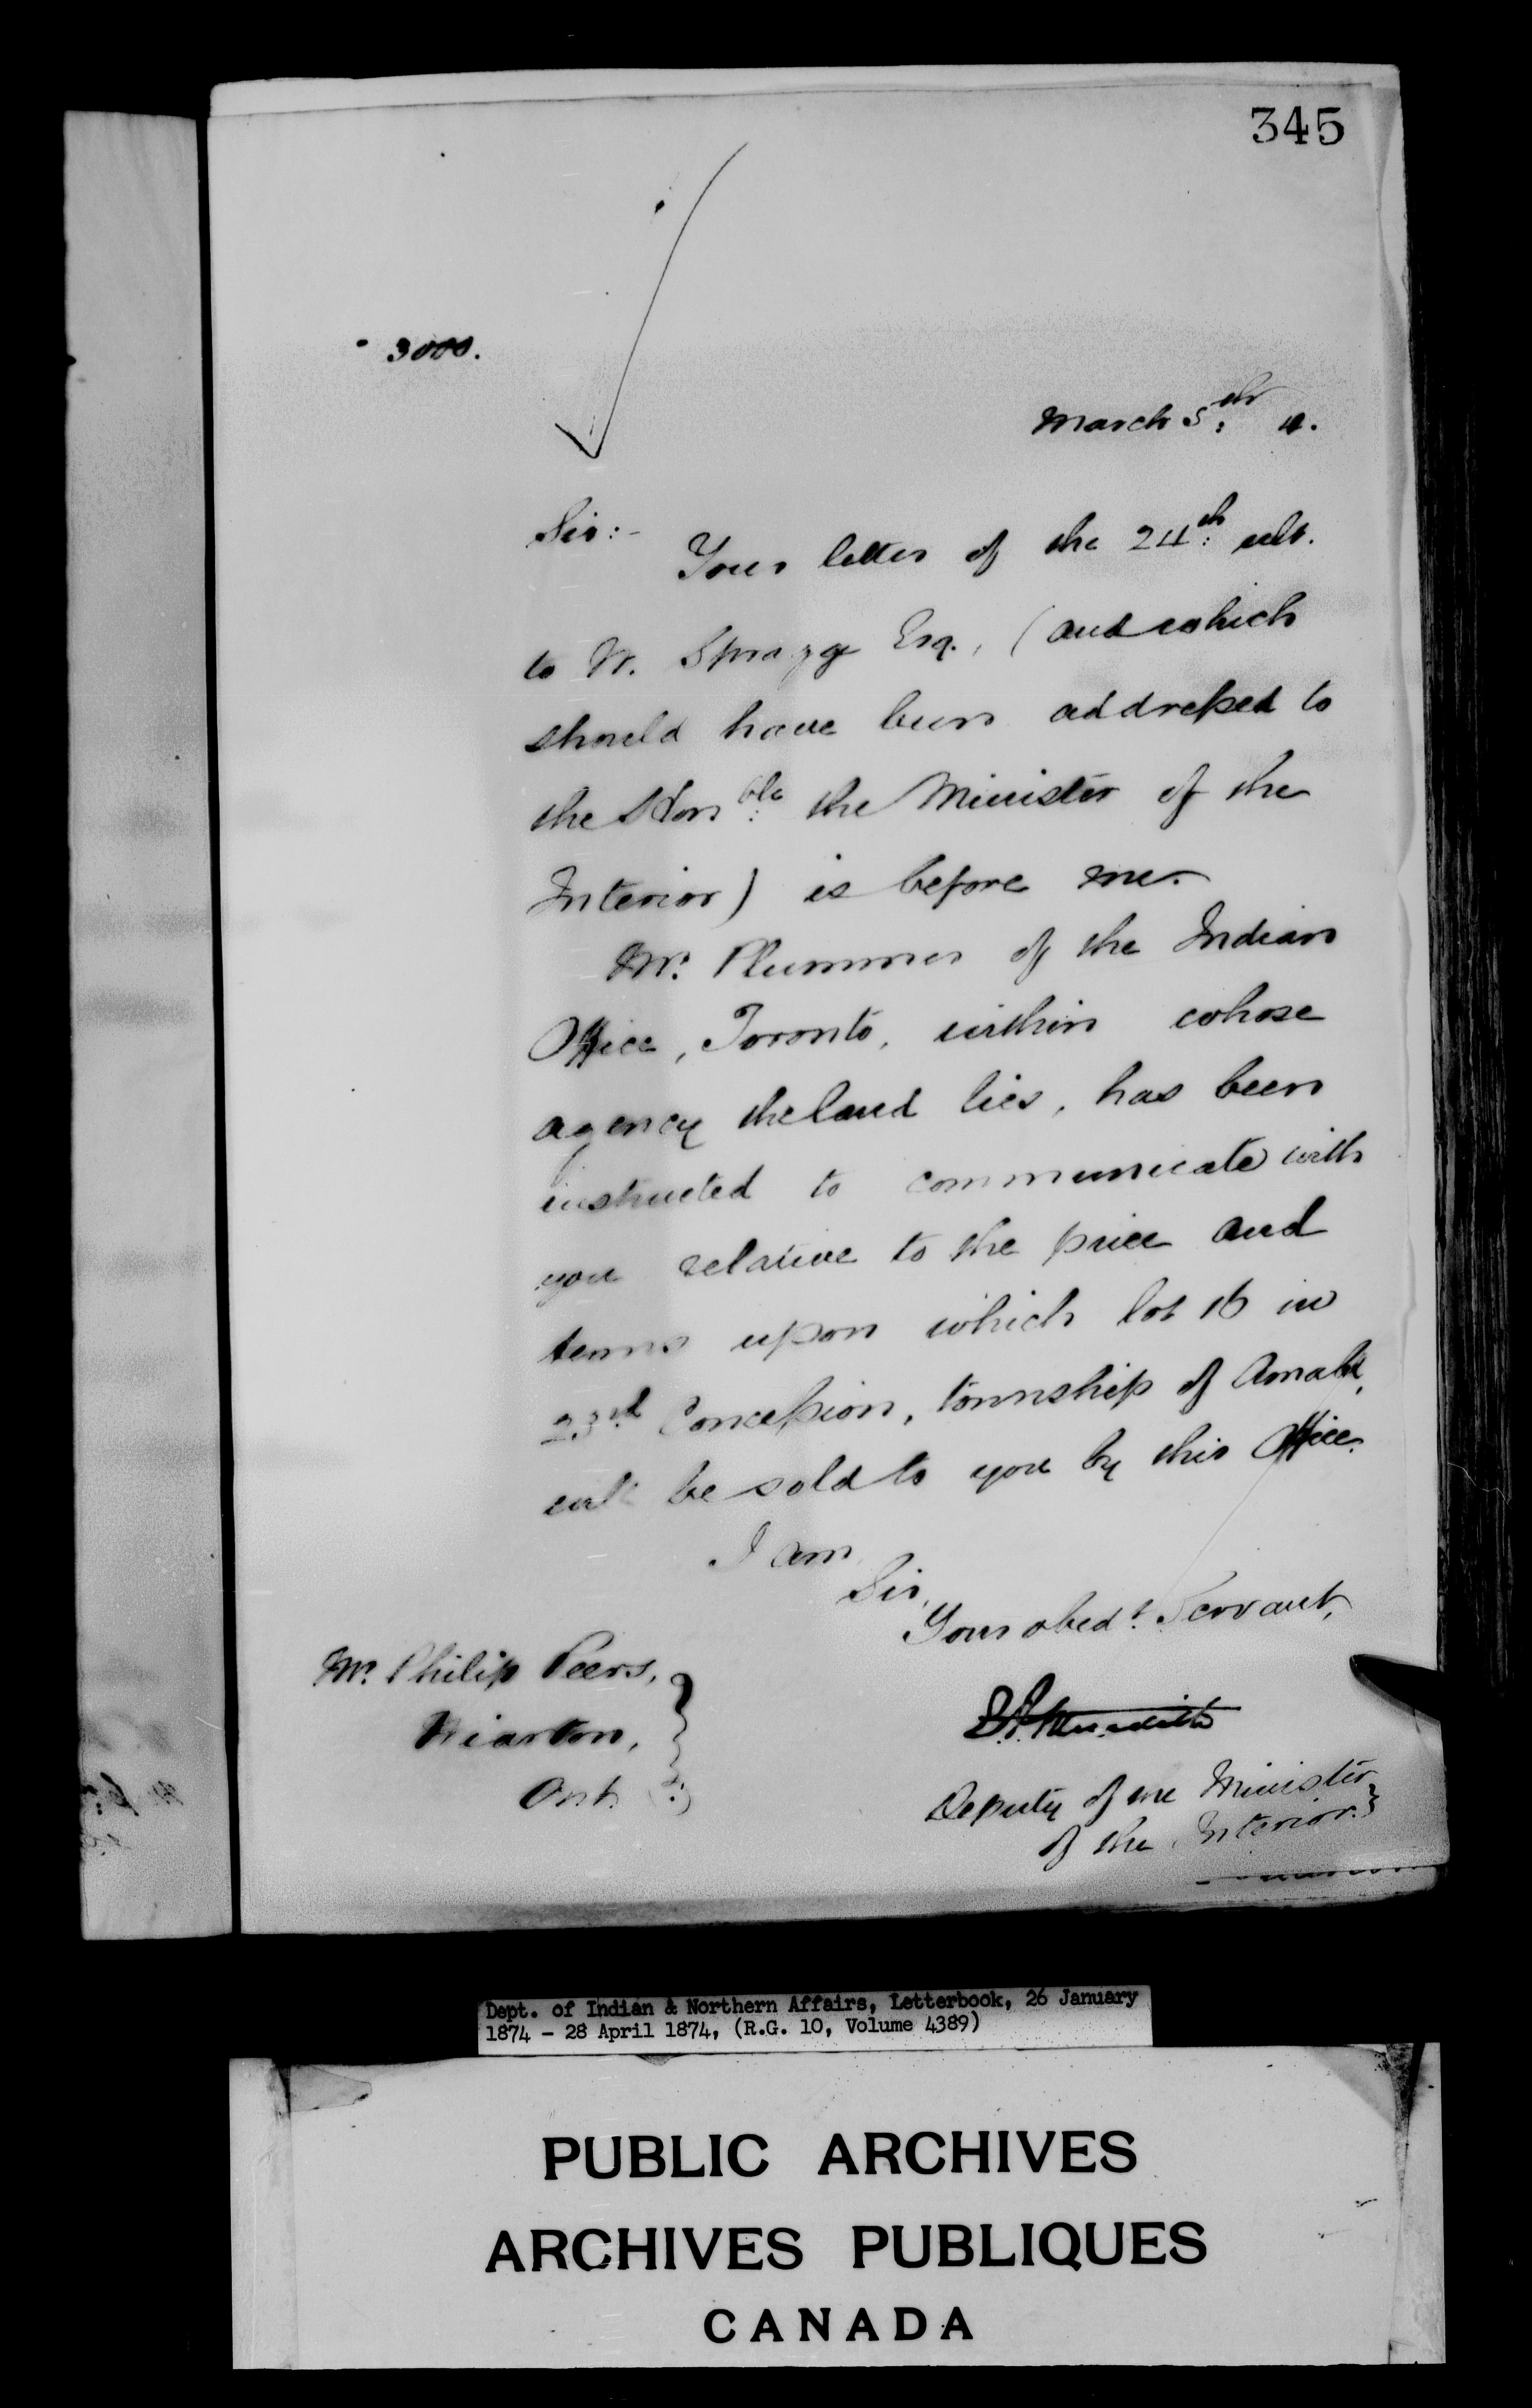 345
3000.
March 5th: 4.
Sir:-
Your letter of the 24th: ult.
to W. Spragge Esq., (and which
should have been addressed to
the Honble: the Minister of the
Interior) is before me.
Mr. Plummer of the Indian
Office, Toronto, within whose
agency the land lies, has been
instructed to communicate with
you relative to the price and
terms upon which lot 16 in
23rd Concession, township of Amabel,
will be sold to you by this Office.
I am,
Sir,
Your obedt. Servant,
Mr. Philip Peers,
Wiarton,
Ont.
E.A. Meredith
Deputy of the Minister
of the Interior.
Dept. of Indian & Northern Affairs, Letterbook, 26 January
1874 - 28 April 1874, (R.G. 10, Volume 4389)
PUBLIC ARCHIVES
ARCHIVES PUBLIQUES
CANADA